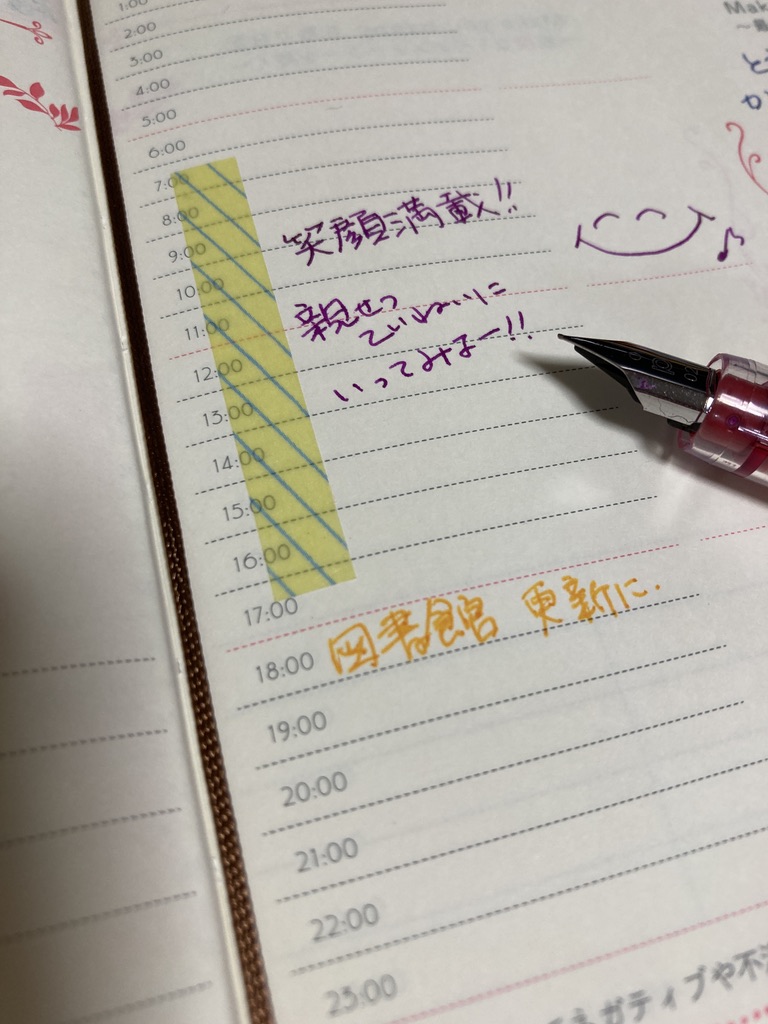 1:00
2:00
3:00
4:00
5:00
6:00
7:00
8:00
笑顔満載!!
9:00
10:00
親せつ
ていねいに
11:00
いってみよー!!
12:00
13:00
14:00
15:00
16:00
17:00
18:00 図書館 更新に.
19:00
20:00
21:00
22:00
23:00
ネガティブや不
Mak